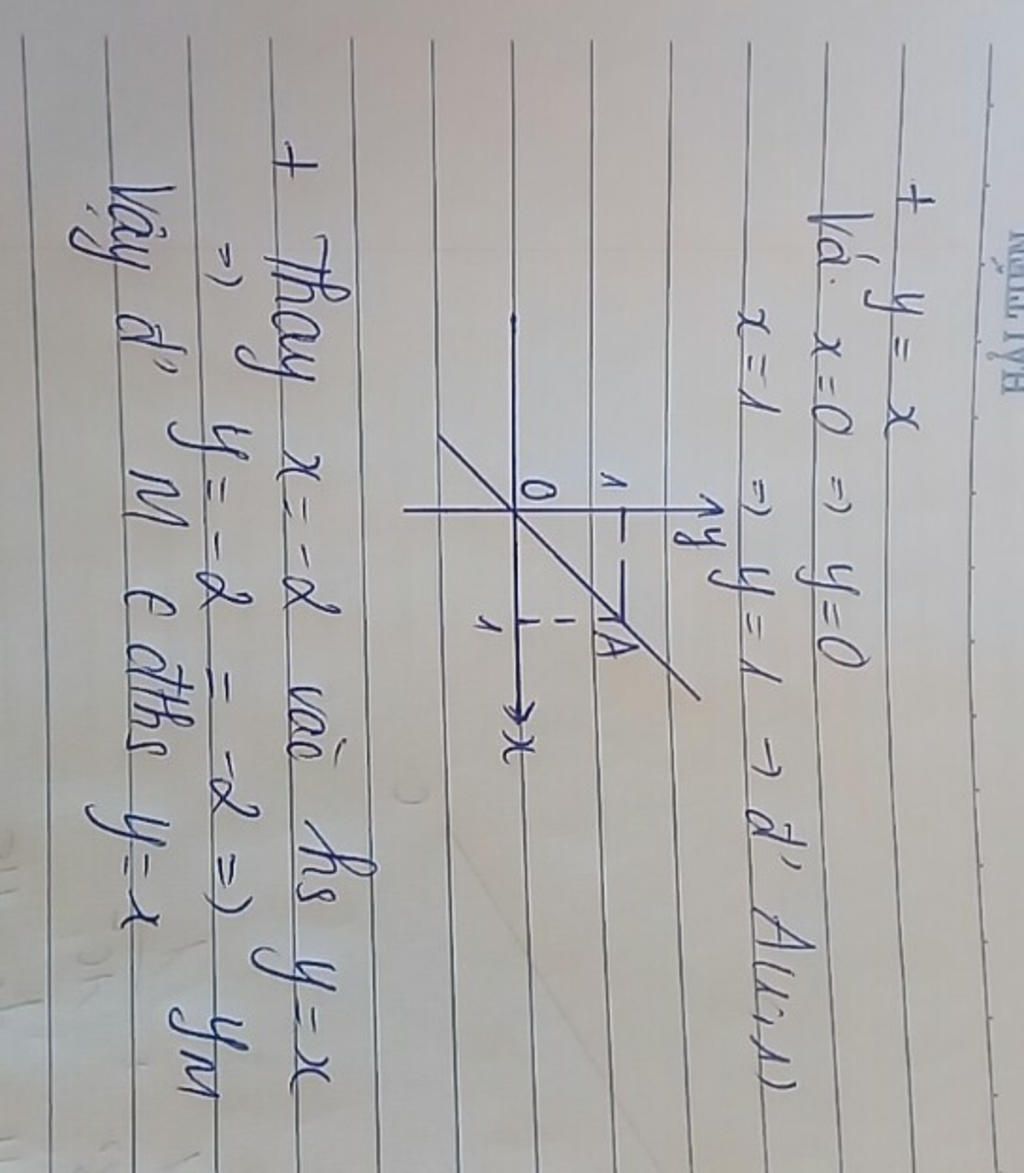 + y = x
Vá. x=0 => y=0
x=1 => y=1 -> đ' A(1;1)
y
1
A
O
1
x
+ Thay x=-2 vào hs y=x
=> y=-2 = -2 => yM
Vậy đ' M ∈ đths y=x